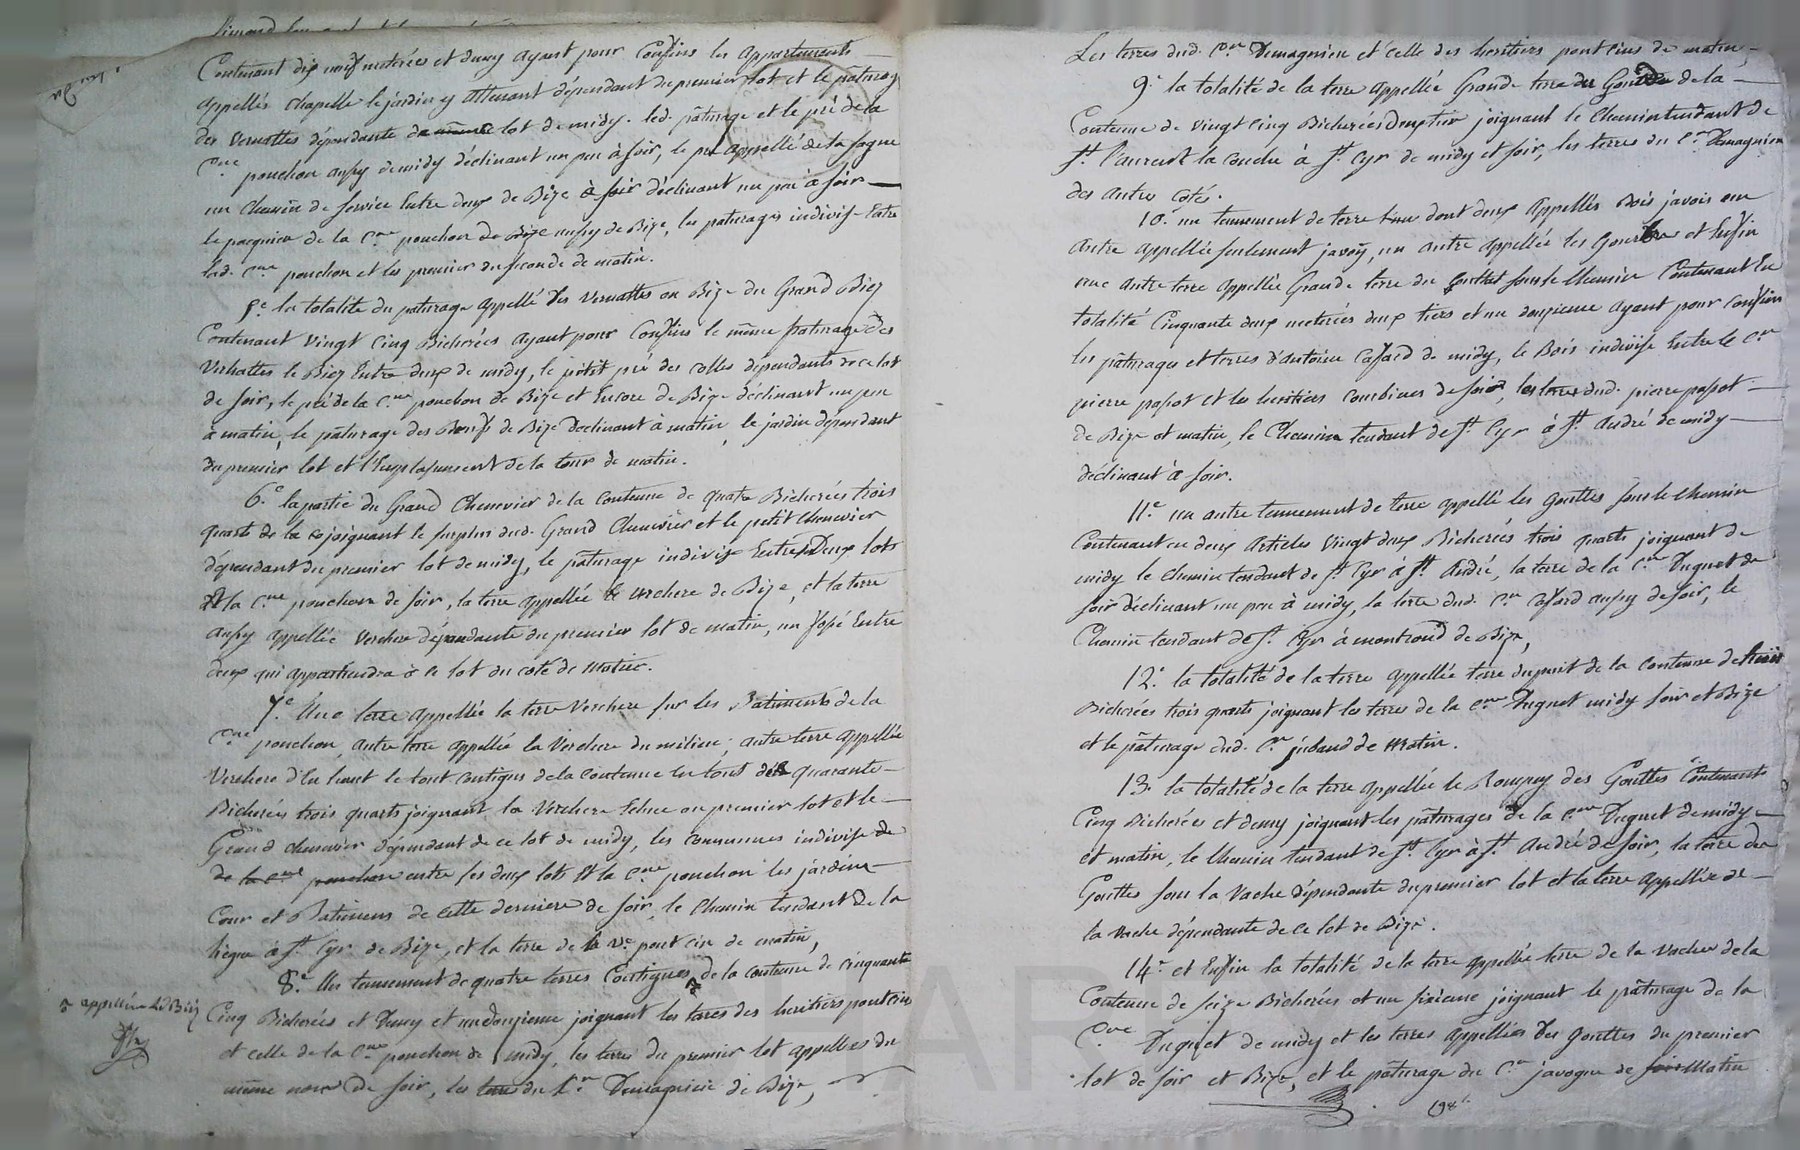 Contenant dix neuf meterées et demy ayant pour Confins les appartements
appellés chapelle le jardin y attenant dépendant du premier lot et le pâturage
des Vernattes dépendante de même lot de midy. led. pâturage et le pré de la
C.ne ponchon aussy de midy déclinant un peu à soir, le pré appellé de la sagne
un Chemin de service Entre deux de Bize à soir déclinant un peu à soir
le pacquier de la C.ne ponchon de Bize aussy de Bize, les paturages indivis Entre
lad. C.ne ponchon et les premier du seconde de matin.
5.e la totalité du paturage appellé des Vernattes ou Bize du Grand Biez
Contenant vingt Cinq Bicherées ayant pour Confins le même paturage des
Verhattes le Biez Entre deux de midy, le pétit pré des colles dépendants de ce lot
de soir, le pré de la C.ne ponchon de Bize et Encore de Bize déclinant un peu
a matin, le pâturage des Bœufs de Bize Declinant à matin, le jardin dépendant
du premier lot et l'Emplassement de la tour de matin.
6.e la partie du Grand Chenevier de la contenue de quatre Bicherées trois
quarts de la joignant le surplus dud. Grand Chenevier et le petit Chenevier
dépendant du premier lot de midy, le pâturage indivis Entre Deux lots
et la C.ne ponchon de soir, la terre appellée le verchere de Bize, et la terre
aussy appellée Verchere dépendante du premier lot de matin, un fossé Entre
deux qui appartiendra à ce lot du coté de Matin.
7.e Une terre appellée la terre Verchere sur les Batiments de la
C.ne ponchon, autre terre appellée la Verchere du milieu, autre terre appellée
Verchere d'En haut le tout contigus de la contenue En tout de quarante
Bicherées trois quarts joignant la Verchere Echue au premier lot et le
Grand chenevier dépendant de ce lot de midy, les communes indivise de
de la C.ne ponchon entre les deux lots et la C.ne ponchon les jardins
Cour et Batimens de cette derniere de soir, le Chemin tendant de la
liegue à S.t Cyr de Bize, et la terre de la V.e pont cin de matin,
8.e Un tennement de quatre terres Contigues de la contenue de cinquante
appellée de Biez
Cinq Bicherées et Demy et un douzieme joignant les terres des heritiers pontcin
et celle de la C.ne ponchon de midy, les terres du premier lot appellées du
même nom De soir, les terre du C.n Demagnieu de Bize,
Les terres dud. C.en Demagnieu et celle des heritiers pont cins de matin,
9.e la totalité de la terre appellée Grande terre de la
Contenue de vingt cinq Bicherées joignant le Chemin tendant de
S.t Laurent la Conche à S.t Cyr de midy et soir, les terres du C.n Demagnieu
des autre cotés.
10.e un tennement de terre dont deux appellés Bois javois une
autre appellée seulement javoy, un autre appellée les et Enfin
une autre terre appellée Grande terre du Gouttes sous le Chemin Contenant En
totalité Cinquante deux meterées deux tiers et un douzieme ayant pour confins
les pâturages et terres d'antoine Cassard de midy, le Bois indivise Entre le C.en
pierre papot et les heritiers combines de soir, les terres dud. pierre papot
de Bize et matin, le Chemin tendant de S.t Cyr à S.t André de midy
déclinant à soir.
11.e un autre tennement de terre appellé les Gouttes sous le Chemin
Contenant en deux articles vingt deux Bicherées trois quarts joignant de
midy le Chemin tendant de S.t Cyr à S.t André, la terre de la C.ne Duguet de
soir déclinant un peu à midy, la terre dud. C.en Cassard aussy de soir, le
Chemin tendant de S.t Cyr à montrond de Bize,
12.e la totalité de la terre appellée terre du puit de la contenue de huit
Bicherées trois quarts joignant les terres de la C.ne Duguet midy soir et Bize
et le pâturage dud. C.en jubaud de Matin.
13.e la totalité de la terre appellée le Rompuy des Gouttes Contenants
Cinq Bicherées et demy joignant les pâturages de la C.ne Duguet de midy
et matin, le Chemin tendant de S.t Cyr à S.t André de soir, la terre des
Gouttes sous la Vache dépendante du premier lot et la terre appellée de
la vache dépendante de ce lot de Bize.
14.e et Enfin la totalité de la terre appellée terre de la vache de la
Contenue de seize Bicherées et un sixieme joignant le pâturage de la
C.ne Duguet de midy et les terres appellées des Gouttes du premier
lot de soir et Bize, et le pâturage du C.en javogue de soir Matin
198
HAR